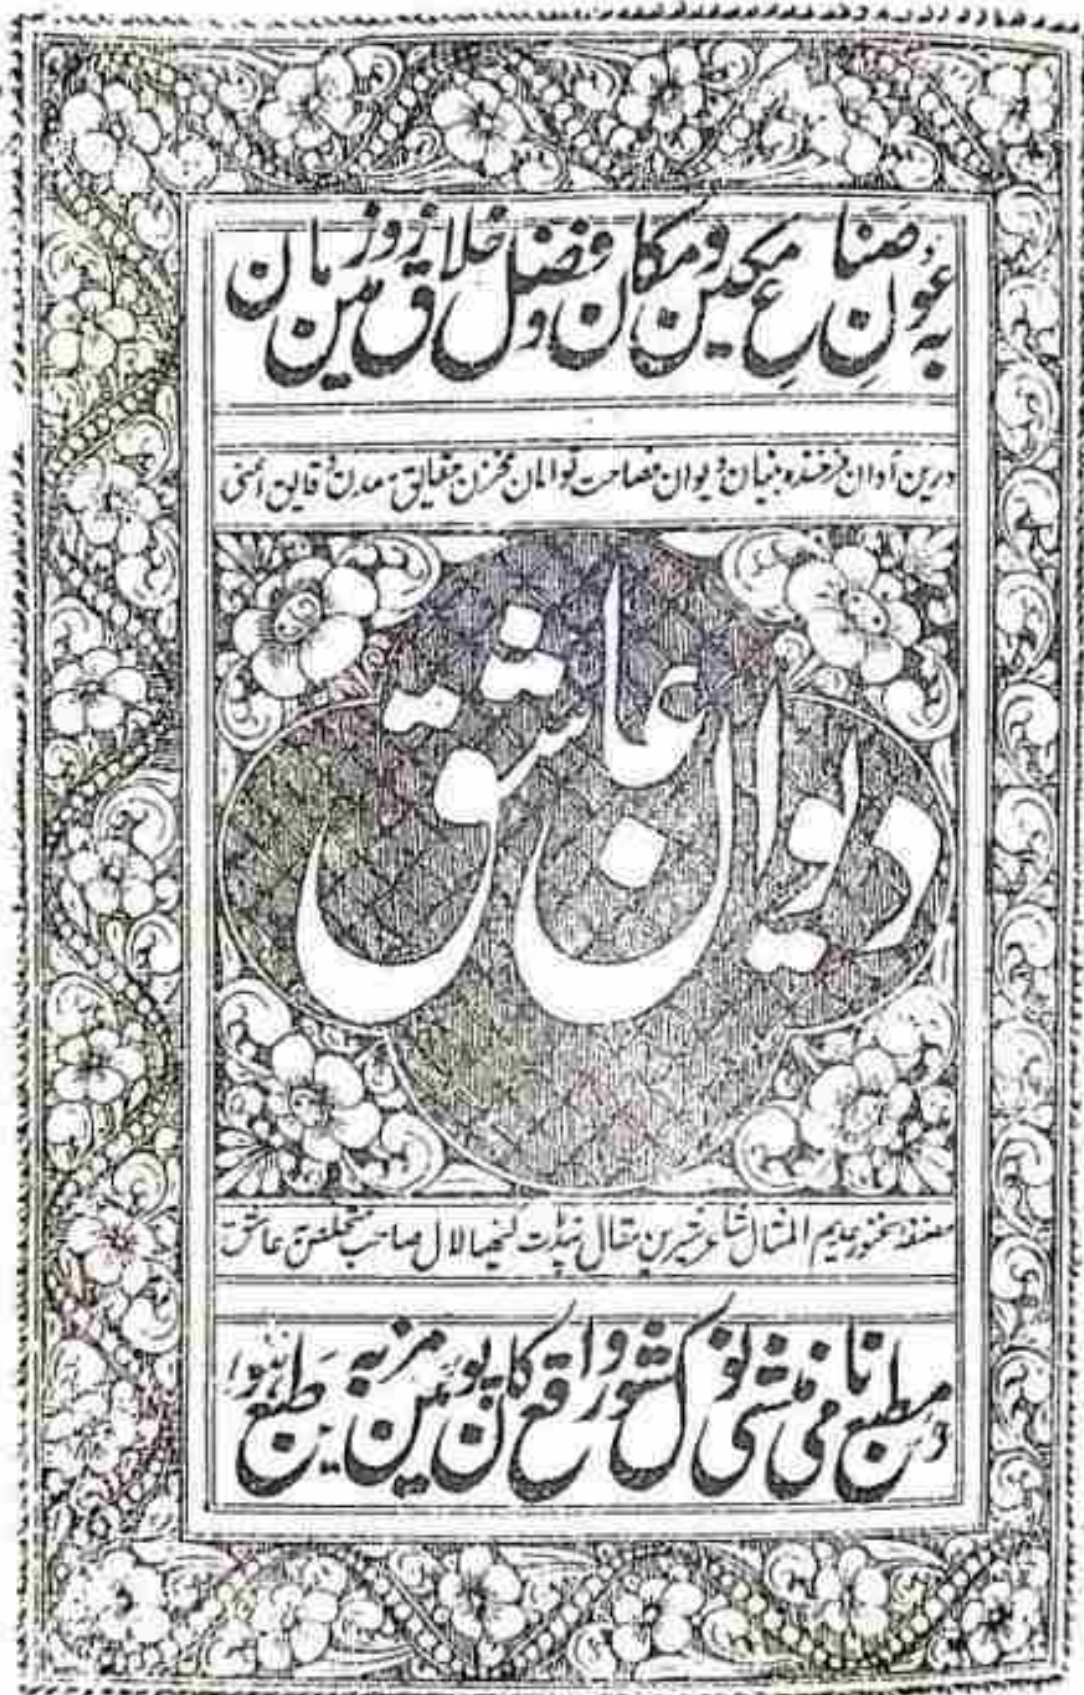 به عونِ صناعِ مکین و مکان و فضل خلاق زمین و زمان
درین آوان فرخنده بنیان دیوان فصاحت توامان مخزن حقایق معدن دقایق اعنی
دیوان عاشق
مصنفه سخنور عدیم المثال شاعر شیرین مقال پنڈت کنھیا لال صاحب متخلص عاشق
در مطبع نامی منشی نولکشور واقع کانپور مین مزین به طبع ہوا